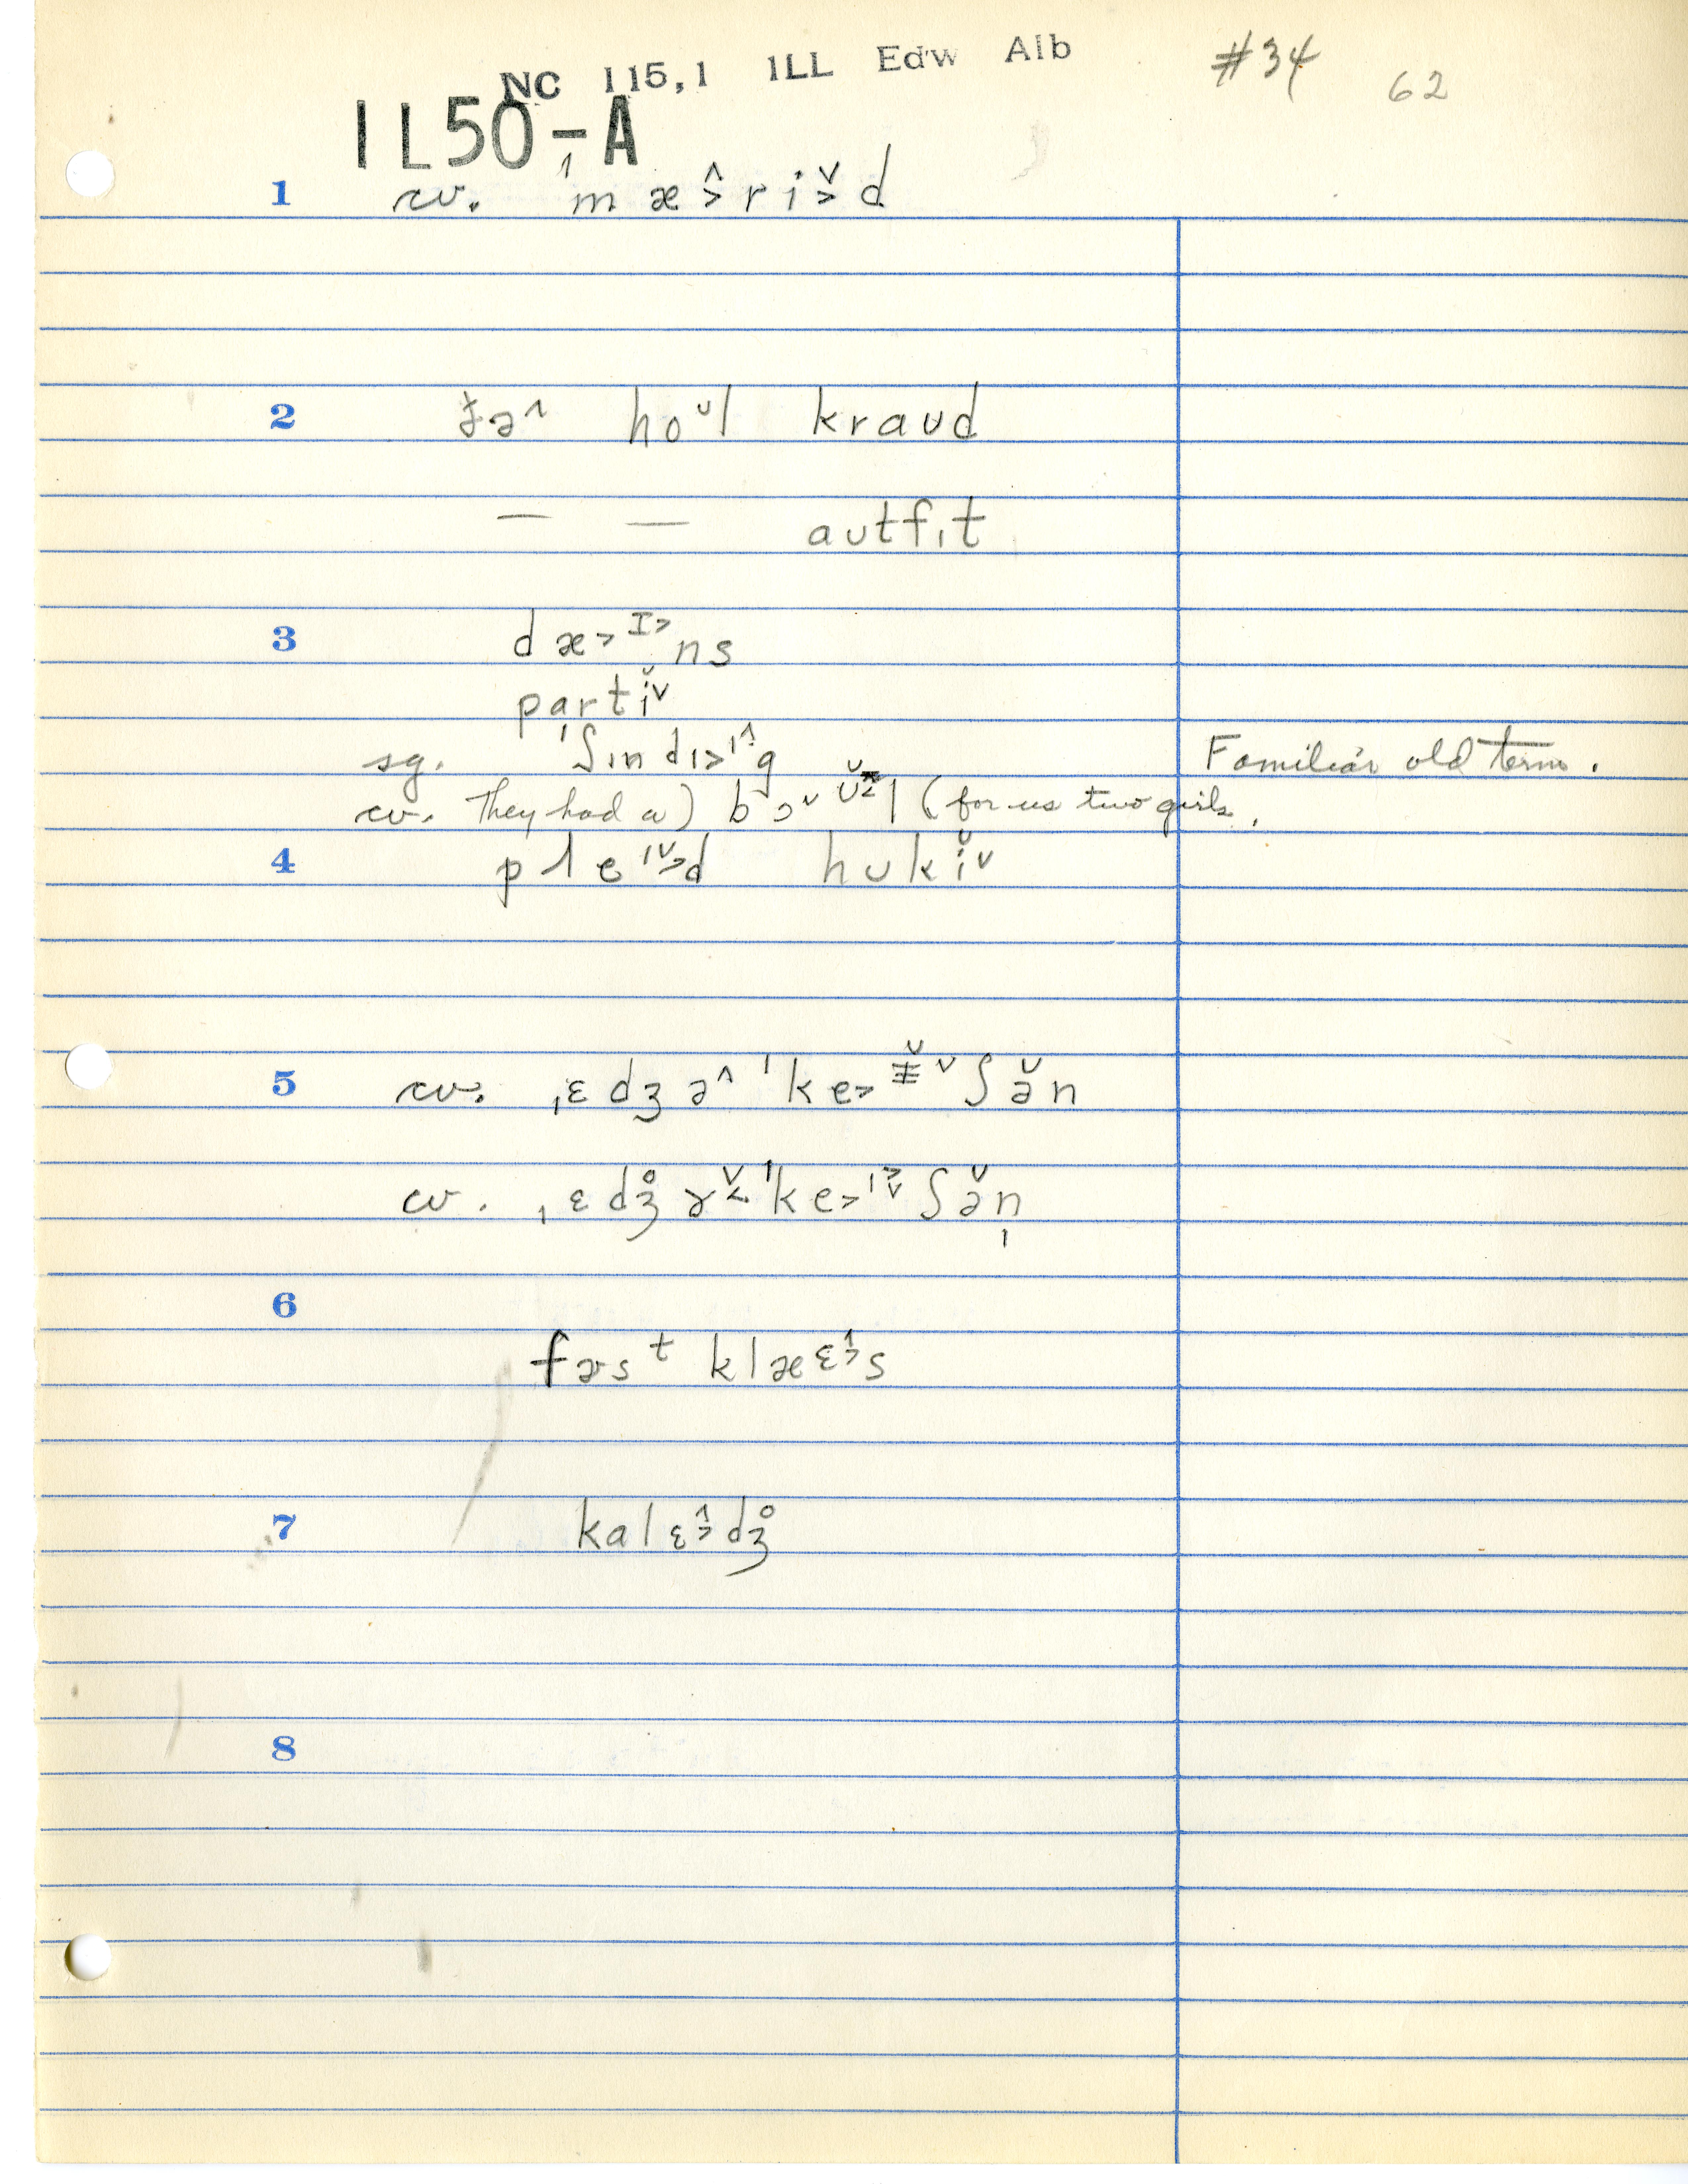 NC 115,1 ILL Edw Alb #34 62
IL50-A
1 cv. ˈmæ˃̂ri˃̌d
2 ðə^ hoᶷl kraʊd
— — aʊtfɪt
3 dæ˃ᴵ˃ns
partĭ˅
sg. ˈʃɪndɪ˃ˈ^g Familiar old term.
cv. They had a) bɔ˅ l (for us two girls.
4 ple ˅˃d hʊkĭ˅
5 cv. ˌɛdʒə^ˈke˃ ˅ʃə̌n
cv. ˌɛdʒ̊ɚ˅˂ˈke˃ᶦ˅˃ʃə̌n̩
6
fɝsᵗ klæɛ^˃s
7 kalɛ^˃dʒ̊
8